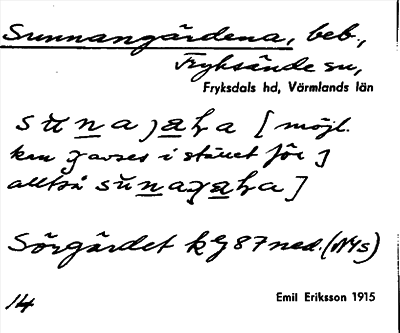 Sunnangärdena, beb.,
Fryksände sn,
Fryksdals hd, Värmlands län
[möjl.
kan ȝ avses i stället för J
alltså
Sörgärdet kg 87 ned. (NYs)
14
Emil Eriksson 1915